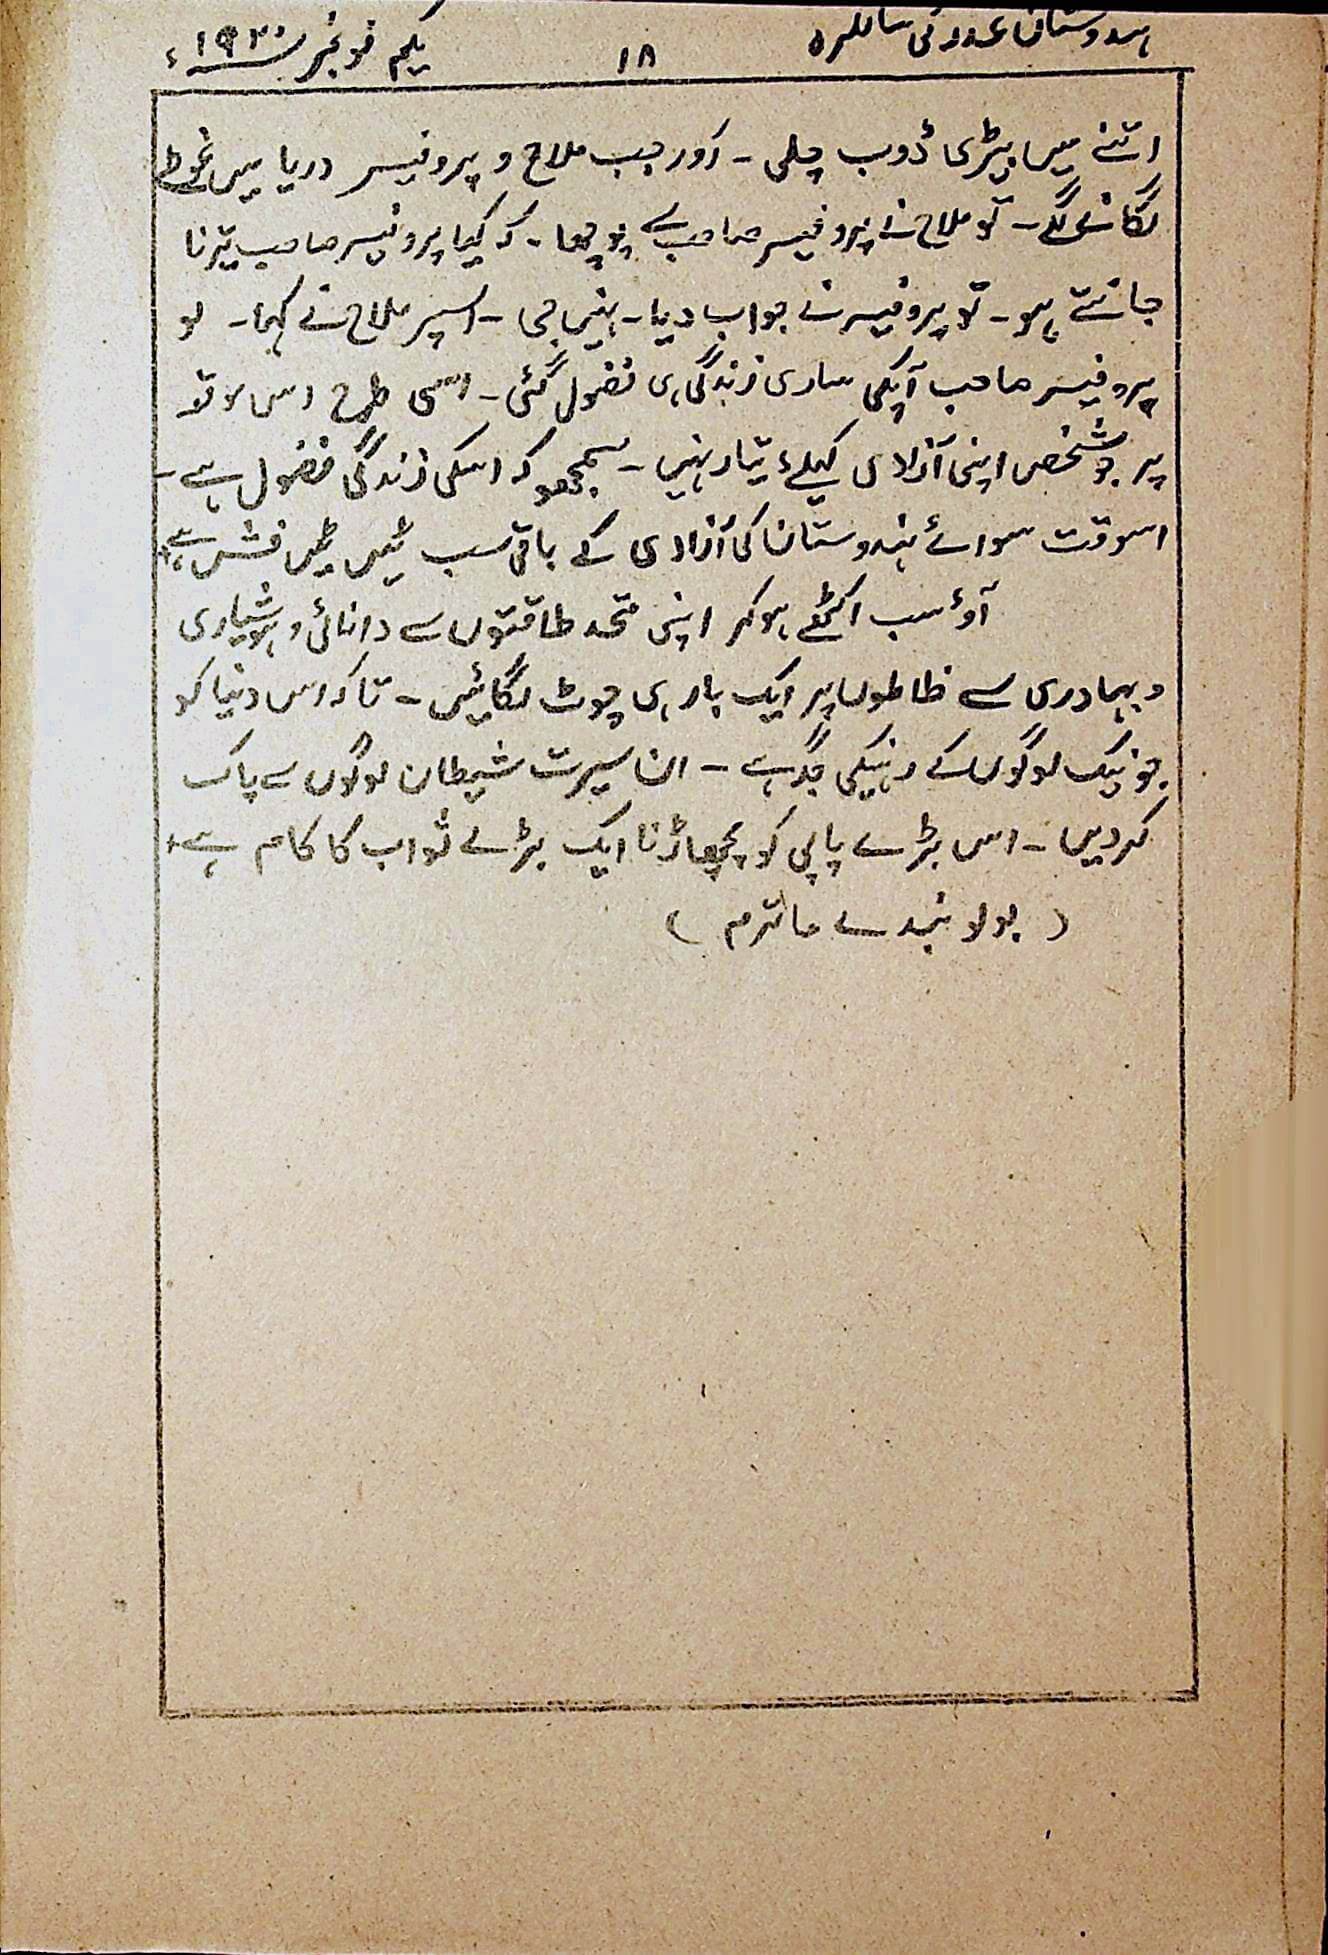 ہندوستان غدر کی سالگرہ ۱۸ یکم نومبر ۱۹۲۰ء
اتنے میں بیڑی ڈوب چلی - اور جب ملاح و پروفیسر دریا میں غوطے
لگانے لگے - تو ملاح نے پروفیسر صاحب سے پوچھا - کہ کیا پروفیسر صاحب تیرنا
جانتے ہو - تو پروفیسر نے جواب دیا - نہیں جی - اسپر ملاح نے کہا - لو
پروفیسر صاحب آپکی ساری زندگی ہی فضول گئی - اسی طرح اس موقعہ
پر جو شخص اپنی آزادی کیلئے تیار نہیں - سمجھو کہ اسکی زندگی فضول ہے -
اسوقت سوائے ہندوستان کی آزادی کے باقی سب ٹیں ٹیں فش ہے
آؤ سب اکٹھے ہو کر اپنی متحد طاقتوں سے دانائی و ہوشیاری
و بہادری سے ظالموں پر ایک بار ہی چوٹ لگائیں - تاکہ اس دنیا کو
جو نیک لوگوں کے رہنیکی جگہ ہے - ان سیرت شیطان لوگوں سے پاک
کردیں - اس بڑے پاپی کو پچھاڑنا ایک بڑے ثواب کا کام ہے
( بولو بندے ماترم )